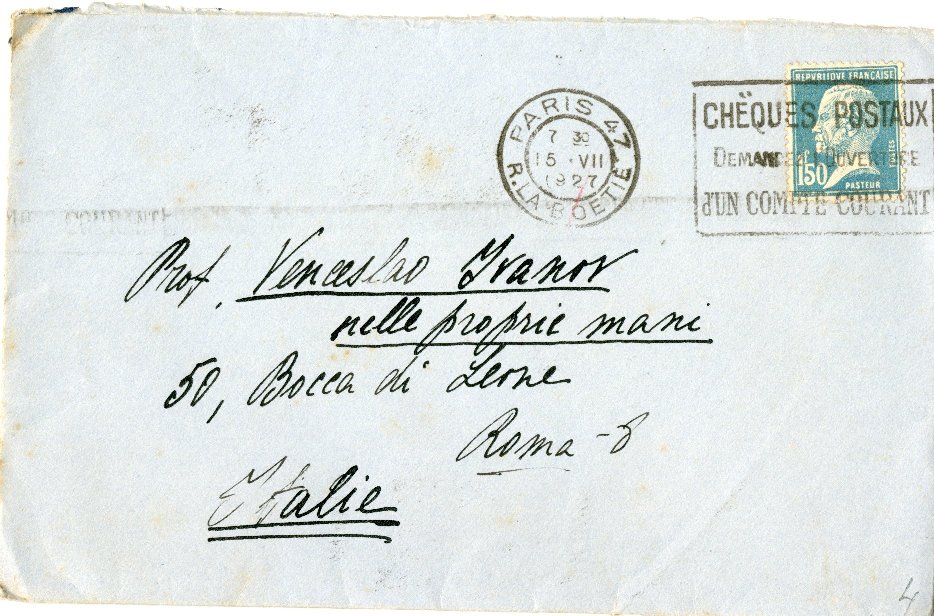 REPUBLIQUE FRANÇAISE
1F50
POSTES
PASTEUR
CHËQUES POSTAUX
DEMANDEZ L'OUVERTURE
d'UN COMPTE COURANT
PARIS 47
7 30
15 · VII
1927
R. LA BOETIE
Prof. Venceslao Ivanov
nelle proprie mani
50, Bocca di Leone
Roma - 8
Italie
4